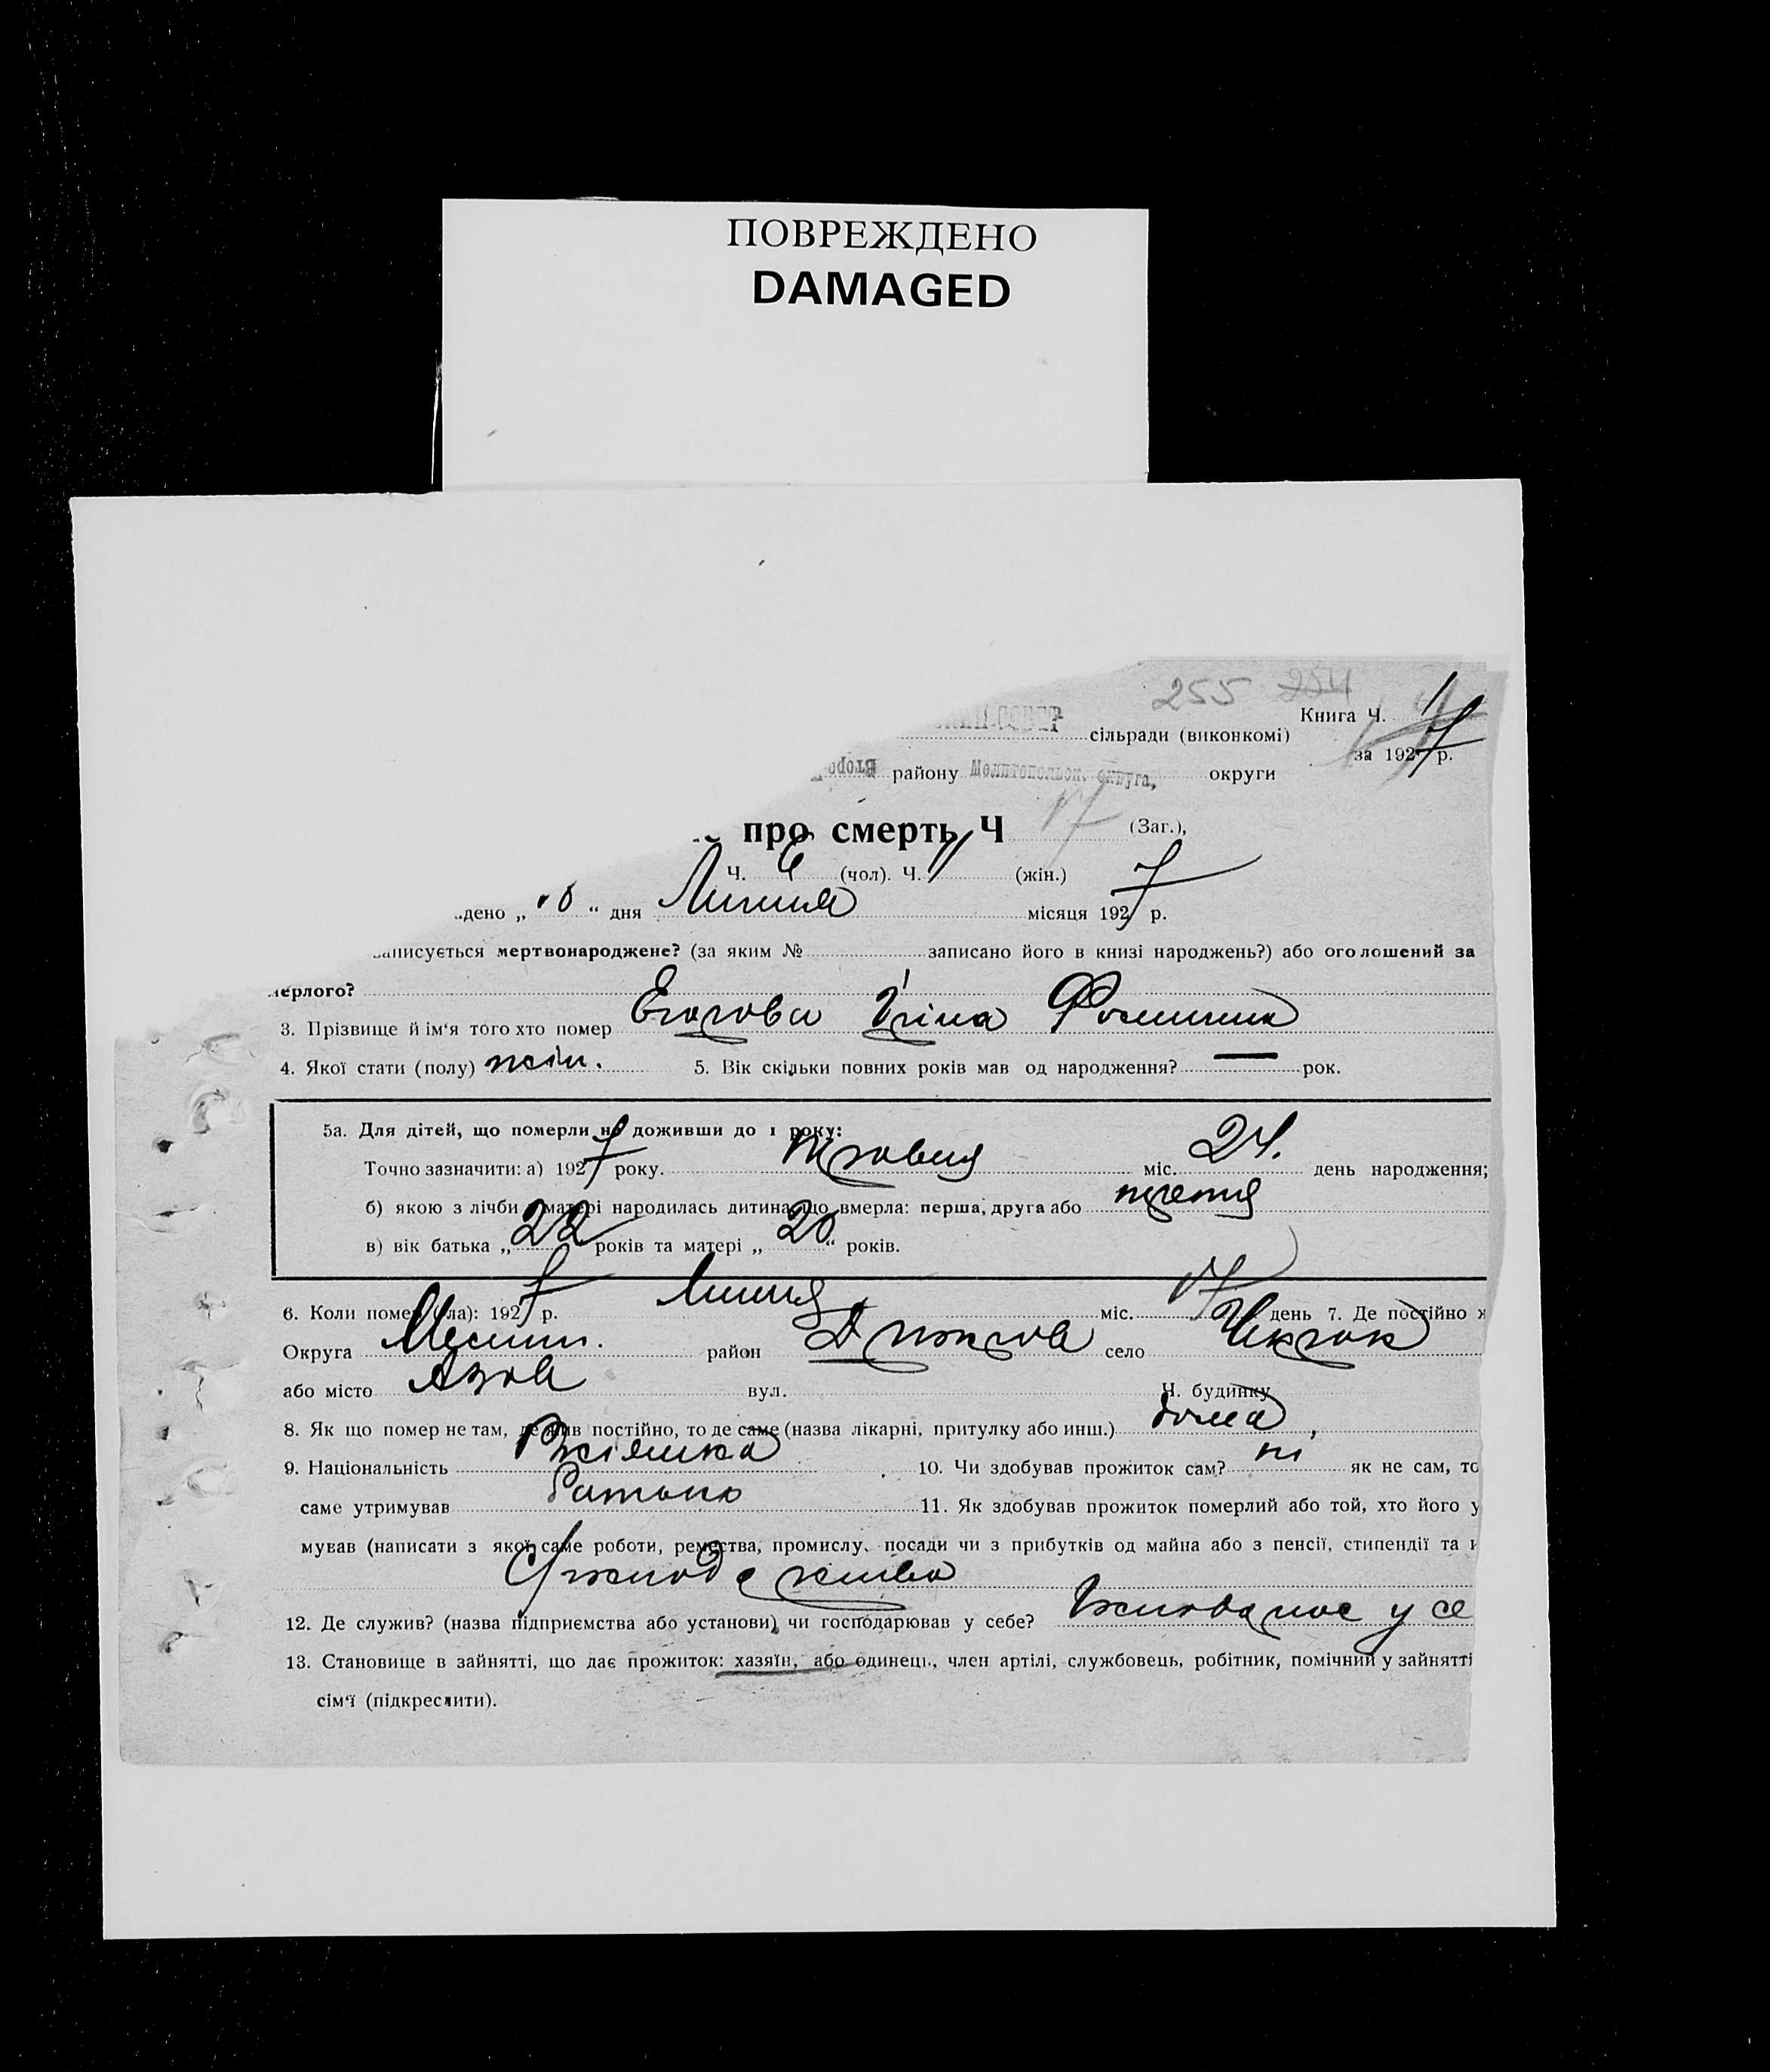 ПОВРЕЖДЕНО
DAMAGED
255 254
Книга Ч. 1
сільради (виконкомі)
за 1927 р.
району Мелитопольск. округа, округи
про смерть Ч 17 (Заг.),
Ч. 6 (чол). Ч. 11 (жін.)
дено „ 18 “ дня Липня місяця 1927 р.
записується мертвонароджене? (за яким № записано його в книзі народжень?) або оголошений за
мерлого?
3. Прізвище й ім‘я того хто помер Егорова
4. Якої стати (полу) жін. 5. Вік скільки повних років мав од народження? — рок.
5а. Для дітей, що померли не доживши до 1 року:
Точно зазначити: а) 1927 року. Травня міс. 24. день народження;
б) якою з лічби у матері народилась дитина, що вмерла: перша, друга або третя
в) вік батька „ 22 років та матері „ 20 “ років.
6. Коли помер (ла): 1927 р. Липня міс. 17 день 7. Де постійно ж
Округа район село
або місто вул. Ч. будинку
8. Як що помер не там, де жив постійно, то де саме (назва лікарні, притулку або инш.) дома
9. Національність 10. Чи здобував прожиток сам? ні як не сам, то
саме утримував 11. Як здобував прожиток померлий або той, хто його у
мував (написати з якої саме роботи, ремества, промислу, посади чи з прибутків од майна або з пенсії, стипендії та и
12. Де служив? (назва підприємства або установи) чи господарював у себе? у се
13. Становище в зайнятті, що дає прожиток: хазяїн, або одинець, член артілі, службовець, робітник, помічний у зайнятті
сім‘ї (підкреслити).